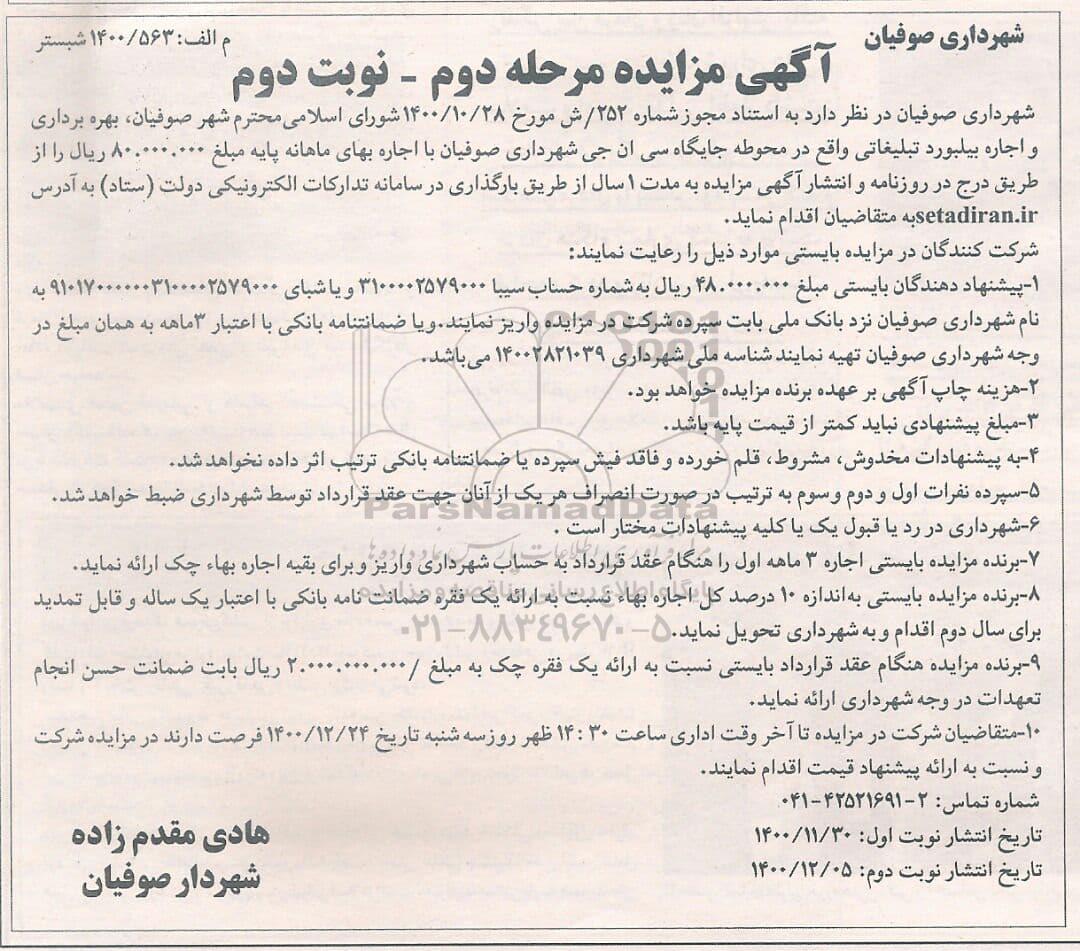 شهرداری صوفیان
م الف: ۱۴۰۰/۵۶۳ شبستر
آگهی مزایده مرحله دوم - نوبت دوم
شهرداری صوفیان در نظر دارد به استناد مجوز شماره ۲۵۲/ش مورخ ۱۴۰۰/۱۰/۲۸ شورای اسلامی محترم شهر صوفیان، بهره برداری
و اجاره بیلبورد تبلیغاتی واقع در محوطه جایگاه سی ان جی شهرداری صوفیان با اجاره بهای ماهانه پایه مبلغ ۸۰.۰۰۰.۰۰۰ ریال را از
طریق درج در روزنامه و انتشار آگهی مزایده به مدت ۱ سال از طریق بارگذاری در سامانه تدارکات الکترونیکی دولت (ستاد) به آدرس
setadiran.ir به متقاضیان اقدام نماید.
شرکت کنندگان در مزایده بایستی موارد ذیل را رعایت نمایند:
۱-پیشنهاد دهندگان بایستی مبلغ ۴۸.۰۰۰.۰۰۰ ریال به شماره حساب سیبا ۳۱۰۰۰۰۲۵۷۹۰۰۰ و یا شبای ۹۱۰۱۷۰۰۰۰۰۰۳۱۰۰۰۰۲۵۷۹۰۰۰ به
نام شهرداری صوفیان نزد بانک ملی بابت سپرده شرکت در مزایده واریز نمایند. و یا ضمانتنامه بانکی با اعتبار ۳ماهه به همان مبلغ در
وجه شهرداری صوفیان تهیه نمایند شناسه ملی شهرداری ۱۴۰۰۲۸۲۱۰۳۹ می باشد.
۲-هزینه چاپ آگهی بر عهده برنده مزایده خواهد بود.
۳-مبلغ پیشنهادی نباید کمتر از قیمت پایه باشد.
۴-به پیشنهادات مخدوش، مشروط، قلم خورده و فاقد فیش سپرده یا ضمانتنامه بانکی ترتیب اثر داده نخواهد شد.
۵-سپرده نفرات اول و دوم و سوم به ترتیب در صورت انصراف هر یک از آنان جهت عقد قرارداد توسط شهرداری ضبط خواهد شد.
ParsNamadData
۶-شهرداری در رد یا قبول یک یا کلیه پیشنهادات مختار است .
۷-برنده مزایده بایستی اجاره ۳ ماهه اول را هنگام عقد قرارداد به حساب شهرداری واریز و برای بقیه اجاره بهاء چک ارائه نماید.
پایگاه اطلاع رسانی مناقصه و مزایده
۸-برنده مزایده بایستی به اندازه ۱۰ درصد کل اجاره بهاء نسبت به ارائه یک فقره ضمانت نامه بانکی با اعتبار یک ساله و قابل تمدید
برای سال دوم اقدام و به شهرداری تحویل نماید.
۰۲۱-۸۸۳۴۹۶۷۰-۵
۹-برنده مزایده هنگام عقد قرارداد بایستی نسبت به ارائه یک فقره چک به مبلغ /۲.۰۰۰.۰۰۰.۰۰۰ ریال بابت ضمانت حسن انجام
تعهدات در وجه شهرداری ارائه نماید.
۱۰-متقاضیان شرکت در مزایده تا آخر وقت اداری ساعت ۳۰ :۱۴ ظهر روز سه شنبه تاریخ ۱۴۰۰/۱۲/۲۴ فرصت دارند در مزایده شرکت
و نسبت به ارائه پیشنهاد قیمت اقدام نمایند.
شماره تماس: ۲-۴۲۵۲۱۶۹۱-۰۴۱
تاریخ انتشار نوبت اول: ۱۴۰۰/۱۱/۳۰
تاریخ انتشار نوبت دوم: ۱۴۰۰/۱۲/۰۵
هادی مقدم زاده
شهردار صوفیان